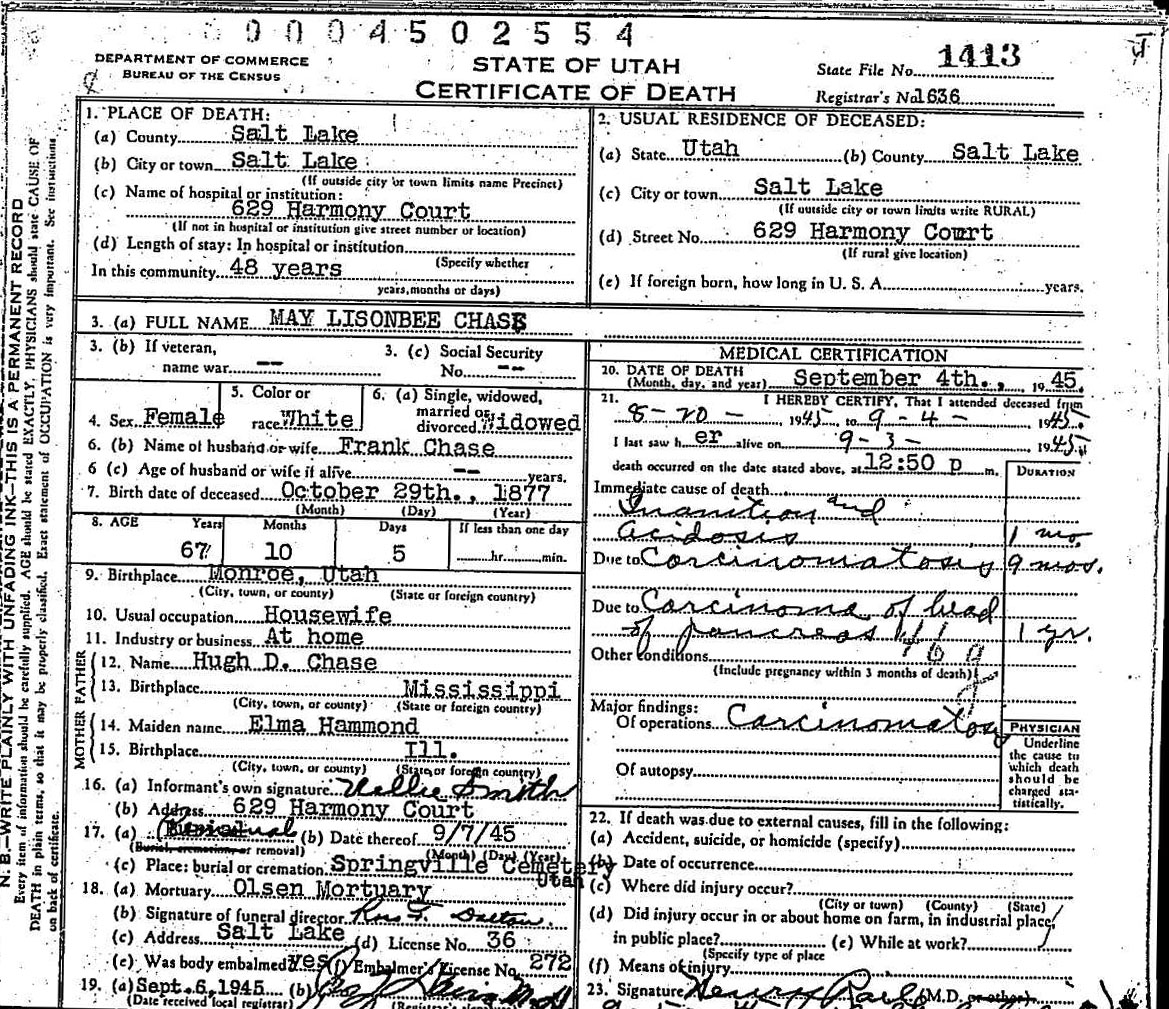 0 0 0 4 5 0 2 5 5 4
DEPARTMENT OF COMMERCE
BUREAU OF THE CENSUS
STATE OF UTAH
CERTIFICATE OF DEATH
State File No. 1413
Registrar's No. 1636
N. B.—WRITE PLAINLY WITH UNFADING INK—THIS IS A PERMANENT RECORD
Every item of information should be carefully supplied. AGE should be stated EXACTLY. PHYSICIANS should state CAUSE OF
DEATH in plain terms, so that it may be properly classified. Exact statement of OCCUPATION is very important. See instructions
on back of certificate.
1. PLACE OF DEATH:
(a) County Salt Lake
(b) City or town Salt Lake
(If outside city or town limits name Precinct)
(c) Name of hospital or institution:
629 Harmony Court
(If not in hospital or institution give street number or location)
(d) Length of stay: In hospital or institution
(Specify whether
In this community 48 years
years, months or days)
2. USUAL RESIDENCE OF DECEASED:
(a) State Utah (b) County Salt Lake
(c) City or town Salt Lake
(If outside city or town limits write RURAL)
(d) Street No. 629 Harmony Court
(If rural give location)
(e) If foreign born, how long in U. S. A. years.
3. (a) FULL NAME MAY LISONBEE CHASE
3. (b) If veteran,
name war --
3. (c) Social Security
No. --
4. Sex Female
5. Color or
race White
6. (a) Single, widowed,
married or
divorced Widowed
6. (b) Name of husband or wife Frank Chase
6 (c) Age of husband or wife if alive -- years.
7. Birth date of deceased October 29th., 1877
(Month) (Day) (Year)
8. AGE Years Months Days If less than one day
67 10 5 hr. min.
9. Birthplace Monroe, Utah
(City, town, or county) (State or foreign country)
10. Usual occupation Housewife
11. Industry or business At home
FATHER
12. Name Hugh D. Chase
13. Birthplace Mississippi
(City, town, or county) (State or foreign country)
MOTHER
14. Maiden name Elma Hammond
15. Birthplace Ill.
(City, town, or county) (State or foreign country)
16. (a) Informant's own signature Nellie Smith
(b) Address 629 Harmony Court
17. (a) Removal (b) Date thereof 9/7/45
(Burial, cremation, or removal) (Month) (Day) (Year)
(c) Place: burial or cremation Springville Cemetery
Utah
18. (a) Mortuary Olsen Mortuary
(b) Signature of funeral director Ross F. Dalton
(c) Address Salt Lake (d) License No. 36
(e) Was body embalmed? yes (f) Embalmer's License No. 272
19. (a) Sept. 6, 1945 (b)
(Date received local registrar) (Registrar's signature)
MEDICAL CERTIFICATION
20. DATE OF DEATH
(Month, day, and year) September 4th., 1945.
21. I HEREBY CERTIFY, That I attended deceased from
8-20-1945, to 9-4-1945.
I last saw her alive on 9-3-1945,
death occurred on the date stated above, at 12:50 p m.
DURATION
Immediate cause of death
Inanition and
Acidosis 1 mo.
Due to Carcinomatosis 9 mos.
Due to Carcinoma of head
of pancreas 46 g 1 yr.
Other conditions
(Include pregnancy within 3 months of death)
Major findings:
Of operations Carcinomatosis
Of autopsy
PHYSICIAN
Underline
the cause to
which death
should be
charged sta-
tistically.
22. If death was due to external causes, fill in the following:
(a) Accident, suicide, or homicide (specify)
(b) Date of occurrence
(c) Where did injury occur?
(City or town) (County) (State)
(d) Did injury occur in or about home on farm, in industrial place,
in public place? (e) While at work?
(Specify type of place
(f) Means of injury
23. Signature Henry (M.D. or other)